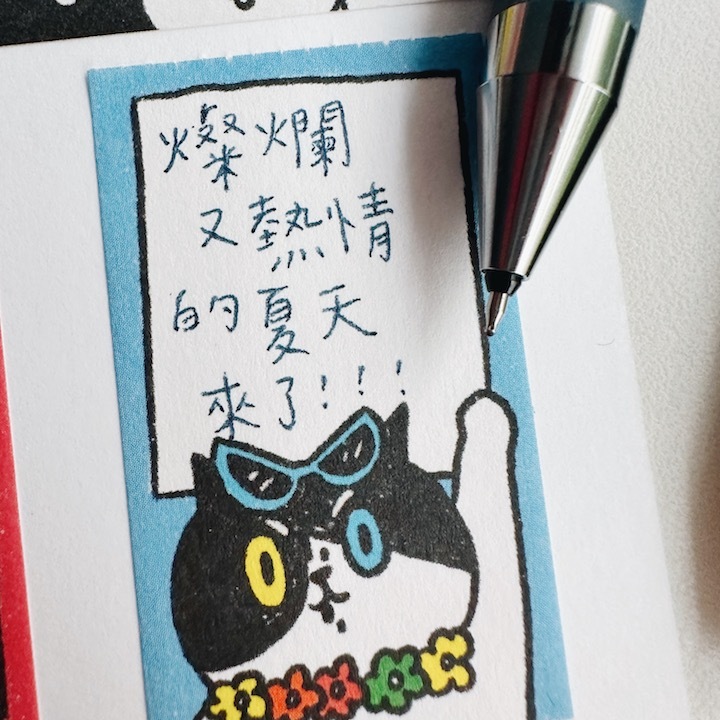 燦爛
又熱情
的夏天
來了!!!